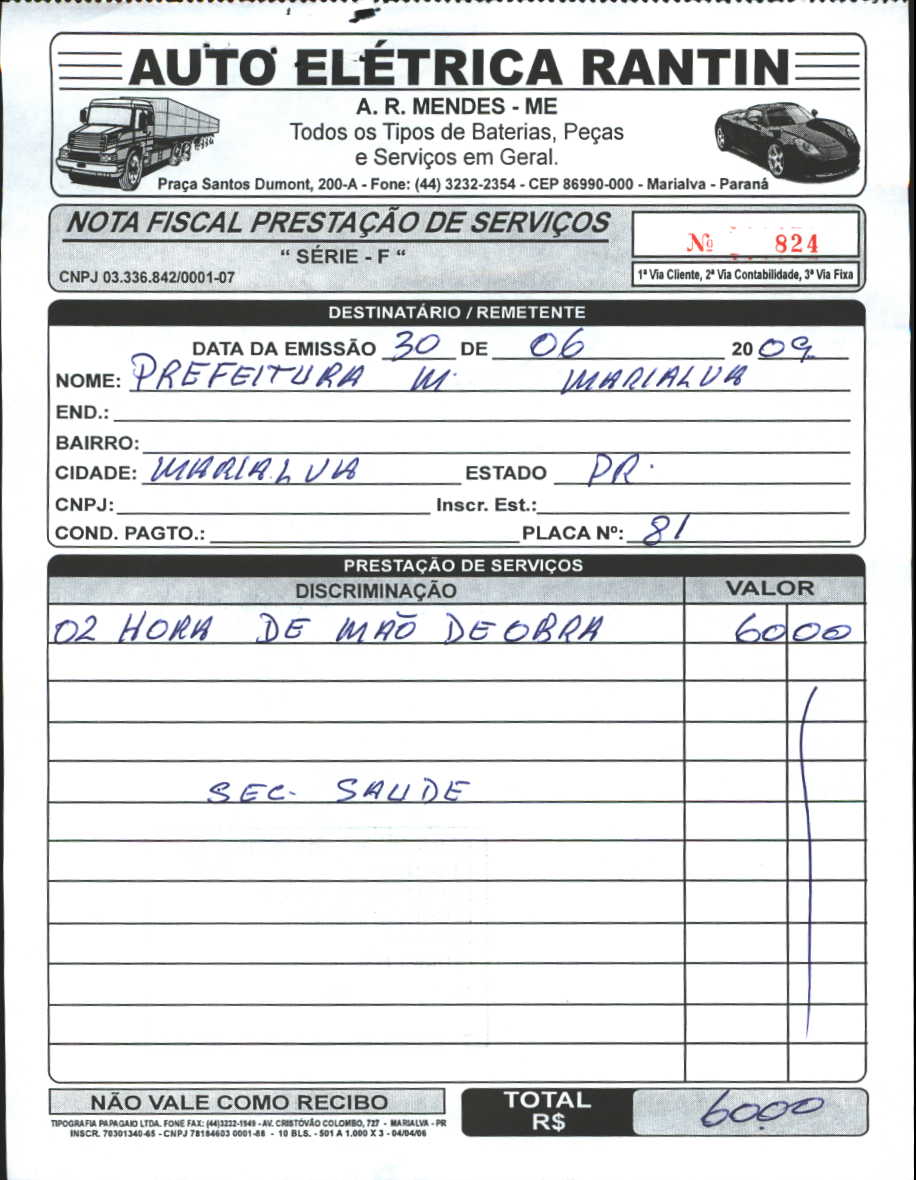 AUTO ELÉTRICA RANTIN
A. R. MENDES - ME
Todos os Tipos de Baterias, Peças
e Serviços em Geral.
Praça Santos Dumont, 200-A - Fone: (44) 3232-2354 - CEP 86990-000 - Marialva - Paraná
NOTA FISCAL PRESTAÇÃO DE SERVIÇOS
“ SÉRIE - F “
Nº 824
CNPJ 03.336.842/0001-07
1ª Via Cliente, 2ª Via Contabilidade, 3ª Via Fixa
DESTINATÁRIO / REMETENTE
DATA DA EMISSÃO 30 DE 06 2009
NOME: PREFEITURA M. MARIALVA
END.:
BAIRRO:
CIDADE: MARIALVA ESTADO PR.
CNPJ: Inscr. Est.:
COND. PAGTO.: PLACA Nº: 81
PRESTAÇÃO DE SERVIÇOS
DISCRIMINAÇÃO VALOR
02 HORA DE MÃO DE OBRA 60 00
SEC. SAUDE
NÃO VALE COMO RECIBO
TOTAL
R$ 60.00
TIPOGRAFIA PAPAGAIO LTDA. FONE FAX: (44)3232-1549 - AV. CRISTÓVÃO COLOMBO, 727 - MARIALVA - PR
INSCR. 70301340-65 - CNPJ 78184603 0001-86 - 10 BLS. - 501 A 1.000 X 3 - 04/04/06